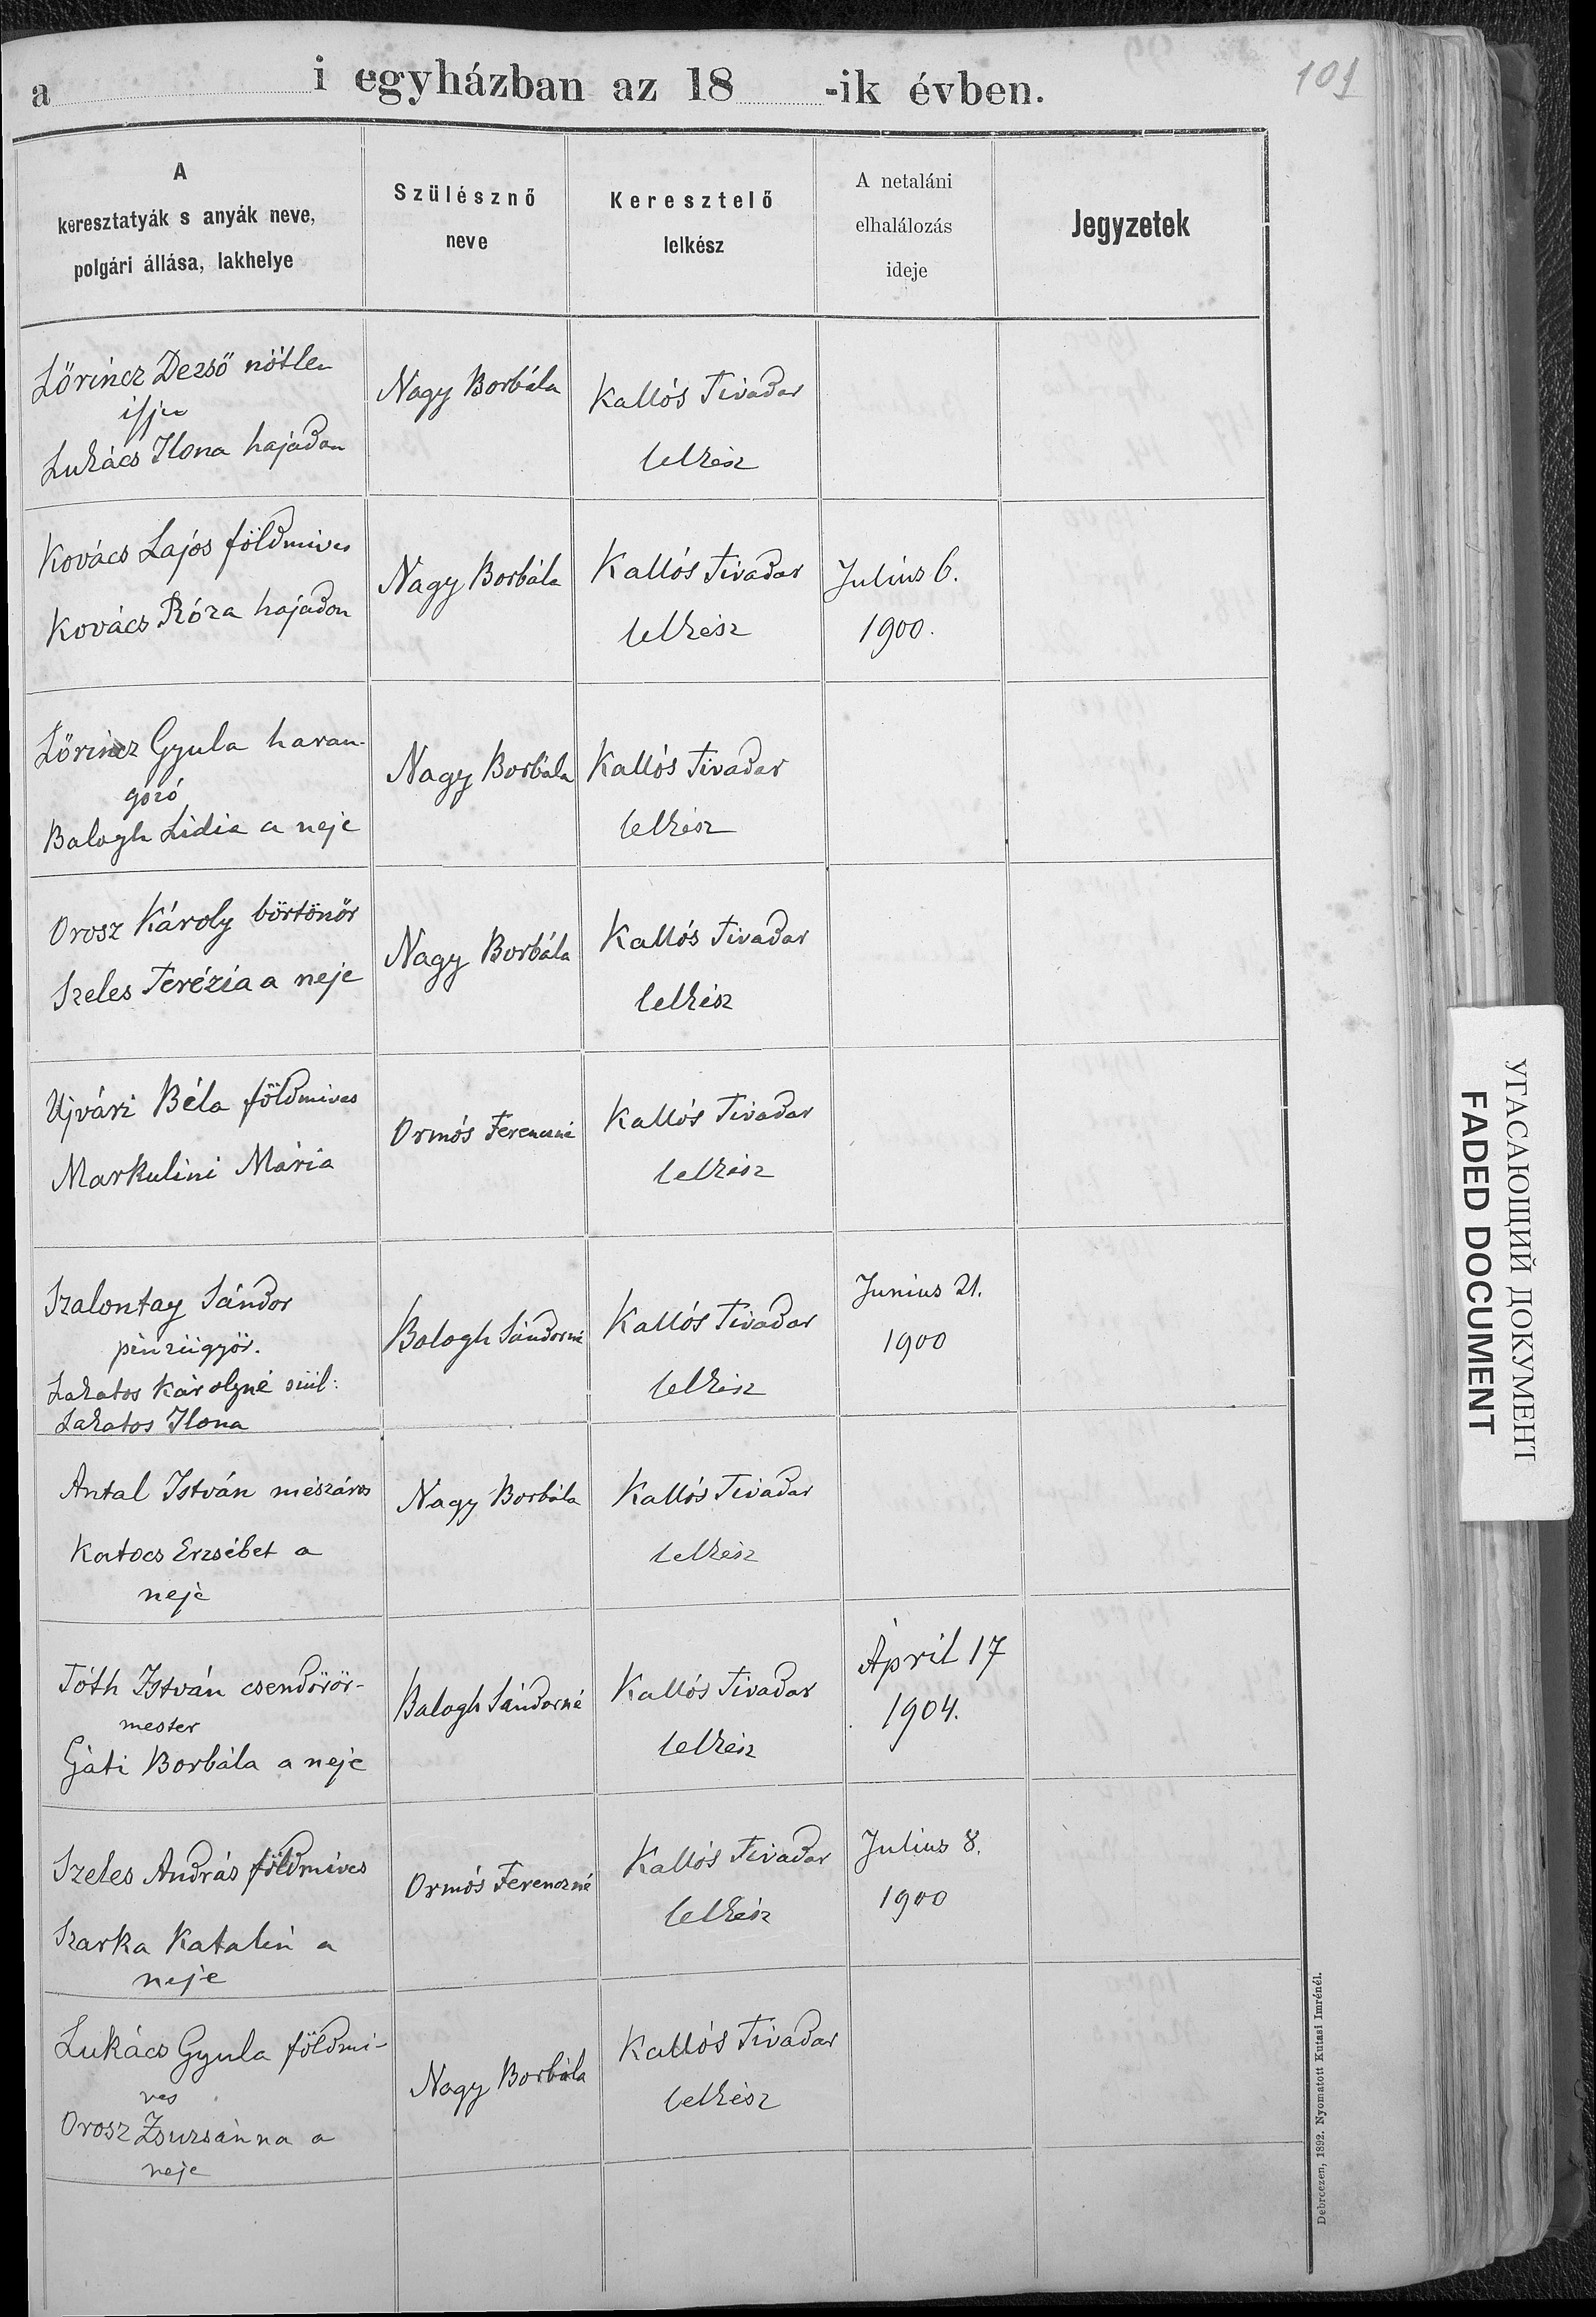 101
a i egyházban az 18 -ik évben.
A
keresztatyák s anyák neve,
polgári állása, lakhelye
Szülésznő
neve
Keresztelő
lelkész
A netaláni
elhalálozás
ideje
Jegyzetek
Lőrincz Dezső nőtlen
ifju
Lukács Ilona hajadon
Nagy Borbála
Kallós Tivadar
lelkész
Kovács Lajos földmives
Kovács Róza hajadon
Nagy Borbála
Kallós Tivadar
lelkész
Julius 6.
1900.
Lőrincz Gyula haran-
gozó
Balogh Lidia a neje
Nagy Borbála
Kallós Tivadar
lelkész
Orosz Károly börtönőr
Szeles Terézia a neje
Nagy Borbála
Kallós Tivadar
lelkész
Ujvári Béla földmives
Markulini Mária
Ormós Ferenczné
Kallós Tivadar
lelkész
Szalontay Sándor
pénzügyőr.
Lakatos Károlyné szül:
Lakatos Ilona
Balogh Sándorné
Kallós Tivadar
lelkész
Junius 21.
1900
Antal István mészáros
Katocs Erzsébet a
neje
Nagy Borbála
Kallós Tivadar
lelkész
Tóth István csendőrőr-
mester
Gáti Borbála a neje
Balogh Sándorné
Kallós Tivadar
lelkész
Ápril 17
1904.
Szeles András földmives
Szarka Katalin a
neje
Ormós Ferenczné
Kallós Tivadar
lelkész
Julius 8.
1900
Lukács Gyula földmi-
ves
Orosz Zsuzsánna a
neje
Nagy Borbála
Kallós Tivadar
lelkész
Debreczen, 1892. Nyomatott Kutasi Imrénél.
УГАСАЮЩИЙ ДОКУМЕНТ
FADED DOCUMENT